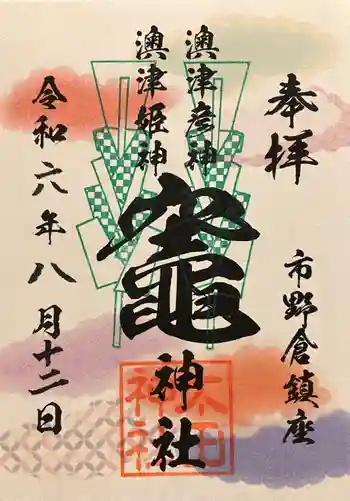 奉拝
市野倉鎮座
澳津彦神
澳津姫神
竈神社
令和六年八月十二日
太田神社